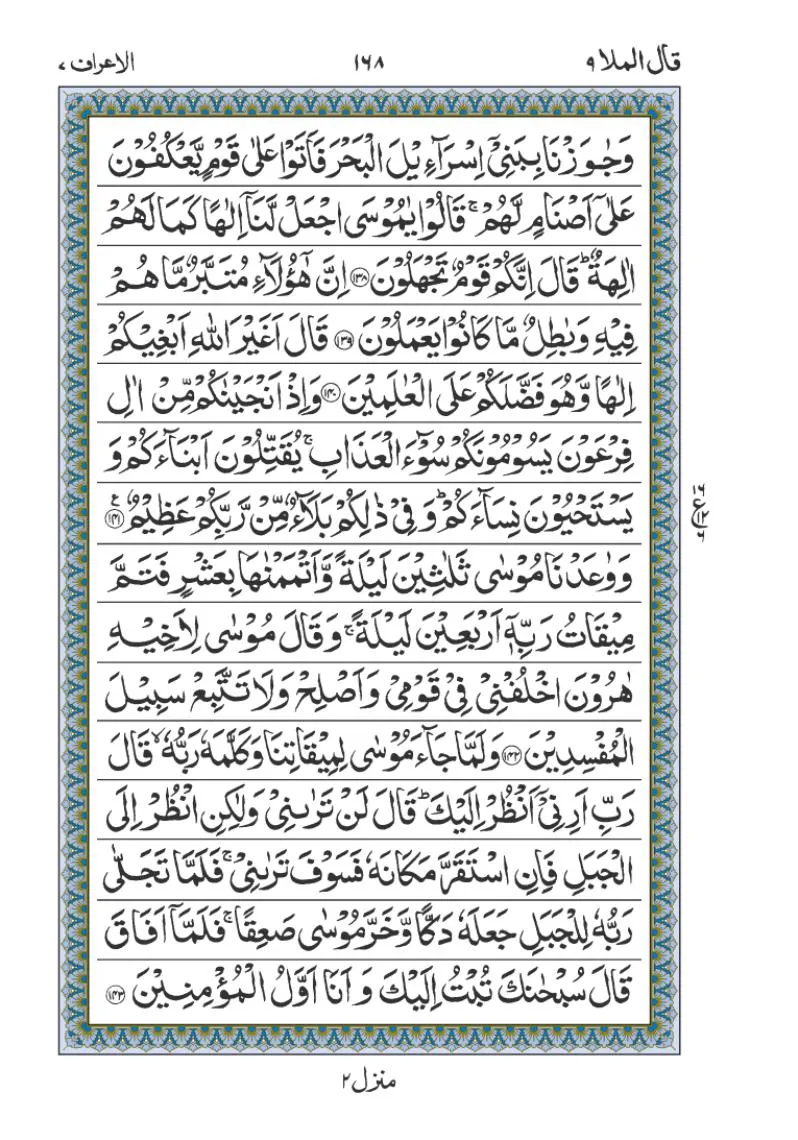 قال الملا ۹ ۱۶۸ الاعراف ۷
وَجٰوَزْنَا بِبَنِیْۤ اِسْرَآءِیْلَ الْبَحْرَ فَاَتَوْا عَلٰی قَوْمٍ یَّعْكُفُوْنَ
عَلٰۤی اَصْنَامٍ لَّهُمْ ۚ قَالُوْا یٰمُوْسَی اجْعَلْ لَّنَاۤ اِلٰهًا كَمَا لَهُمْ
اٰلِهَةٌ ؕ قَالَ اِنَّكُمْ قَوْمٌ تَجْهَلُوْنَ ﴿۱۳۸﴾ اِنَّ هٰۤؤُلَآءِ مُتَبَّرٌ مَّا هُمْ
فِیْهِ وَبٰطِلٌ مَّا كَانُوْا یَعْمَلُوْنَ ﴿۱۳۹﴾ قَالَ اَغَیْرَ اللّٰهِ اَبْغِیْكُمْ
اِلٰهًا وَّهُوَ فَضَّلَكُمْ عَلَی الْعٰلَمِیْنَ ﴿۱۴۰﴾ وَاِذْ اَنْجَیْنٰكُمْ مِّنْ اٰلِ
فِرْعَوْنَ یَسُوْمُوْنَكُمْ سُوْٓءَ الْعَذَابِ ۚ یُقَتِّلُوْنَ اَبْنَآءَكُمْ وَ
یَسْتَحْیُوْنَ نِسَآءَكُمْ ؕ وَ فِیْ ذٰلِكُمْ بَلَآءٌ مِّنْ رَّبِّكُمْ عَظِیْمٌ ﴿۱۴۱﴾ ع
وَوٰعَدْنَا مُوْسٰی ثَلٰثِیْنَ لَیْلَةً وَّاَتْمَمْنٰهَا بِعَشْرٍ فَتَمَّ
مِیْقَاتُ رَبِّهٖۤ اَرْبَعِیْنَ لَیْلَةً ۚ وَ قَالَ مُوْسٰی لِاَخِیْهِ
هٰرُوْنَ اخْلُفْنِیْ فِیْ قَوْمِیْ وَاَصْلِحْ وَلَا تَتَّبِعْ سَبِیْلَ
الْمُفْسِدِیْنَ ﴿۱۴۲﴾ وَلَمَّا جَآءَ مُوْسٰی لِمِیْقَاتِنَا وَكَلَّمَهٗ رَبُّهٗ ۙ قَالَ
رَبِّ اَرِنِیْۤ اَنْظُرْ اِلَیْكَ ؕ قَالَ لَنْ تَرٰىنِیْ وَلٰكِنِ انْظُرْ اِلَی
الْجَبَلِ فَاِنِ اسْتَقَرَّ مَكَانَهٗ فَسَوْفَ تَرٰىنِیْ ۚ فَلَمَّا تَجَلّٰی
رَبُّهٗ لِلْجَبَلِ جَعَلَهٗ دَكًّا وَّخَرَّ مُوْسٰی صَعِقًا ۚ فَلَمَّاۤ اَفَاقَ
قَالَ سُبْحٰنَكَ تُبْتُ اِلَیْكَ وَ اَنَا اَوَّلُ الْمُؤْمِنِیْنَ ﴿۱۴۳﴾
منزل ۲